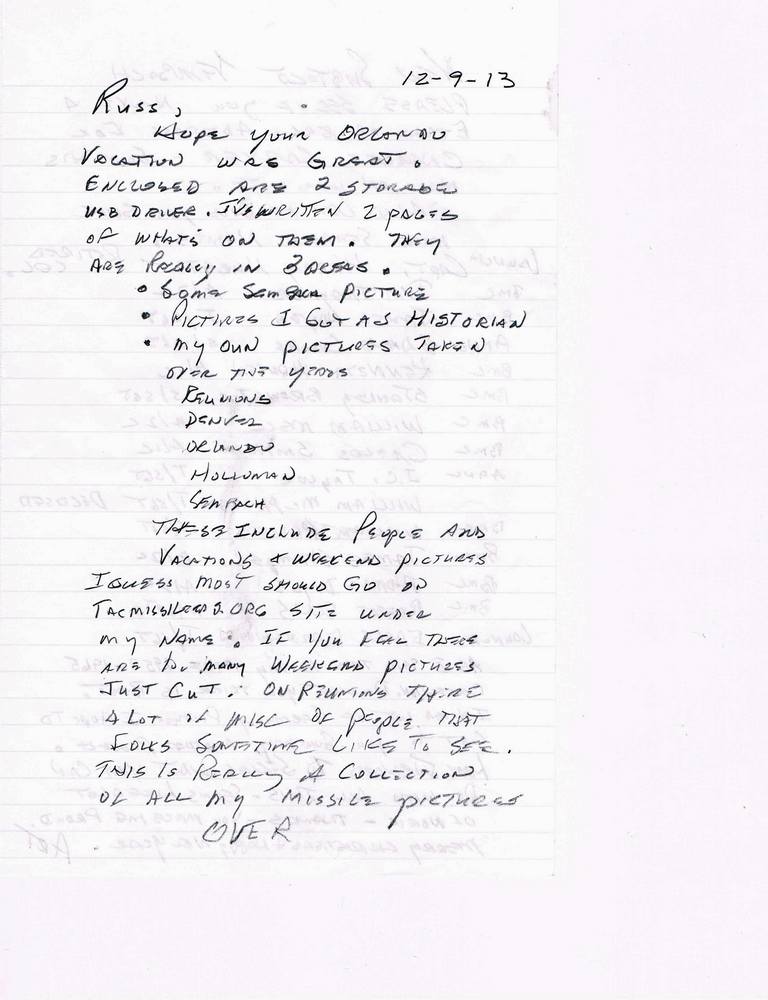 12-9-13
Russ,
HOPE YOUR ORLANDO
VACATION WAS GREAT.
ENCLOSED ARE 2 STORAGE
USB DRIVER. I'VE WRITTEN 2 PAGES
OF WHAT'S ON THEM. THEY
ARE REALLY IN 3 AREAS.
• SOME SEMBACH PICTURE
• PICTURES I GOT AS HISTORIAN
• MY OWN PICTURES TAKEN
OVER THE YEARS
REUNIONS
DENVER
ORLANDO
HOLLOMAN
SEMBACH
THESE INCLUDE PEOPLE AND
VACATIONS & WEEKEND PICTURES
I GUESS MOST SHOULD GO ON
TACMISSILEERS.ORG SITE UNDER
MY NAME. IF YOU FEEL THERE
ARE TOO MANY WEEKEND PICTURES
JUST CUT. ON REUNIONS THERE
A LOT OF MISC OF PEOPLE THAT
FOLKS SOMETIME LIKE TO SEE.
THIS IS REALLY A COLLECTION
OF ALL MY MISSILE PICTURES
OVER